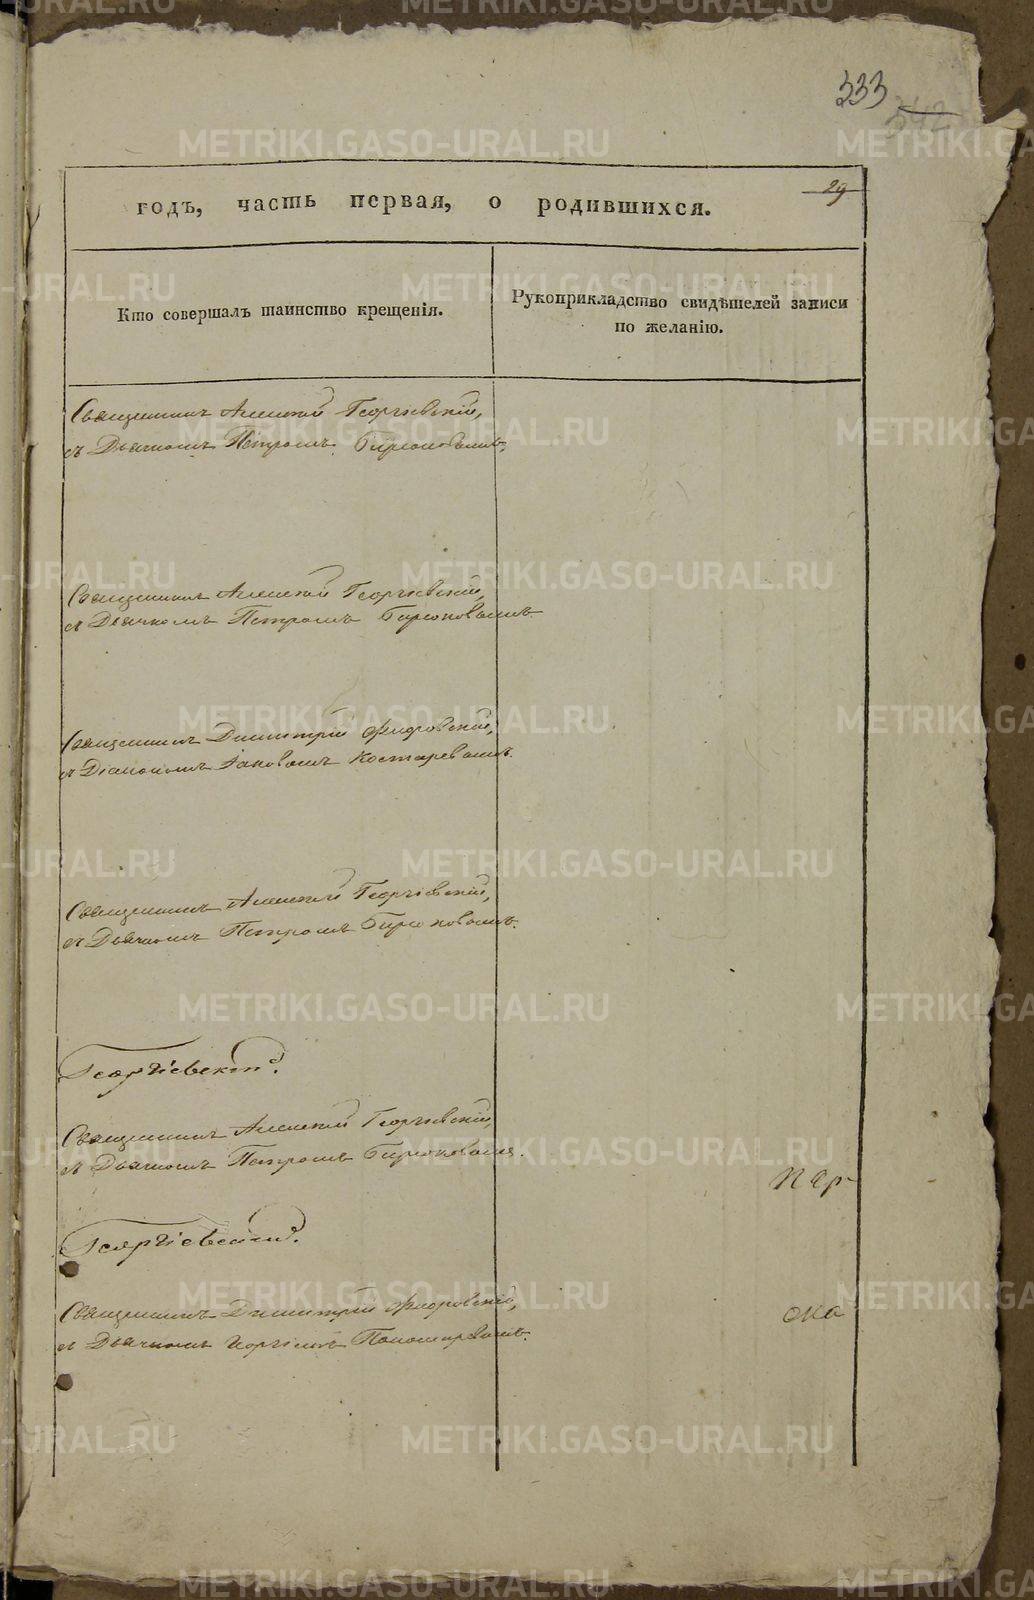 333
342
29
годъ, часть первая, о родившихся.
Кто совершалъ таинство крещенія.
Рукоприкладство свидѣтелей записи
по желанію.
Священникъ Алексѣй Георгіевскій,
съ Дьячкомъ Петромъ Бирюковымъ.
Священникъ Алексѣй Георгіевскій,
съ Дьячкомъ Петромъ Бирюковымъ.
Священникъ Димитрій Флоровскій,
съ Діакономъ Іаковомъ Костаревымъ.
Священникъ Алексѣй Георгіевскій,
съ Дьячкомъ Петромъ Бирюковымъ.
Георгіевскій.
Священникъ Алексѣй Георгіевскій,
съ Дьячкомъ Петромъ Бирюковымъ.
Пер
Георгіевскій.
Священникъ Димитрій Флоровскій,
съ Дьячкомъ
ока
METRIKI.GASO-URAL.RU